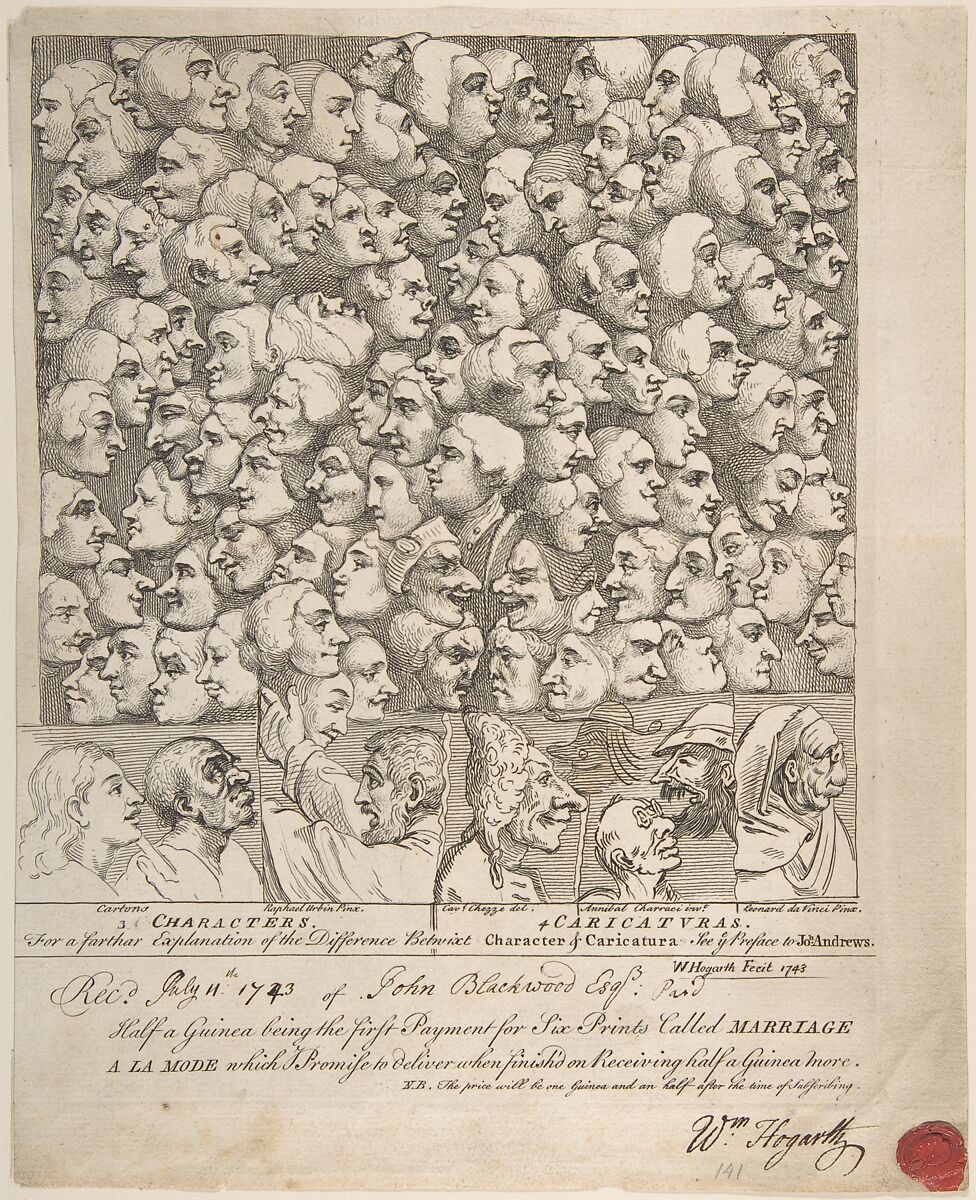 Cartons
Raphael Urbin Pinx.
Cavr. Chezze del.
Annibal Charraci invt.
Leonard da Vinci Pinx.
3 CHARACTERS.
4 CARICATVRAS.
For a farthar Explanation of the Difference Betwixt Character & Caricatura See ye Preface to Johs. Andrews.
W Hogarth Fecit 1743
Recd. July 11th. 1743 of John Blackwood Esqr. Paid
Half a Guinea being the first Payment for Six Prints Called MARRIAGE
A LA MODE which I Promise to deliver when finish'd on Receiving half a Guinea more.
N.B. The price will be one Guinea and an half after the time of Subscribing.
Wm. Hogarth
141